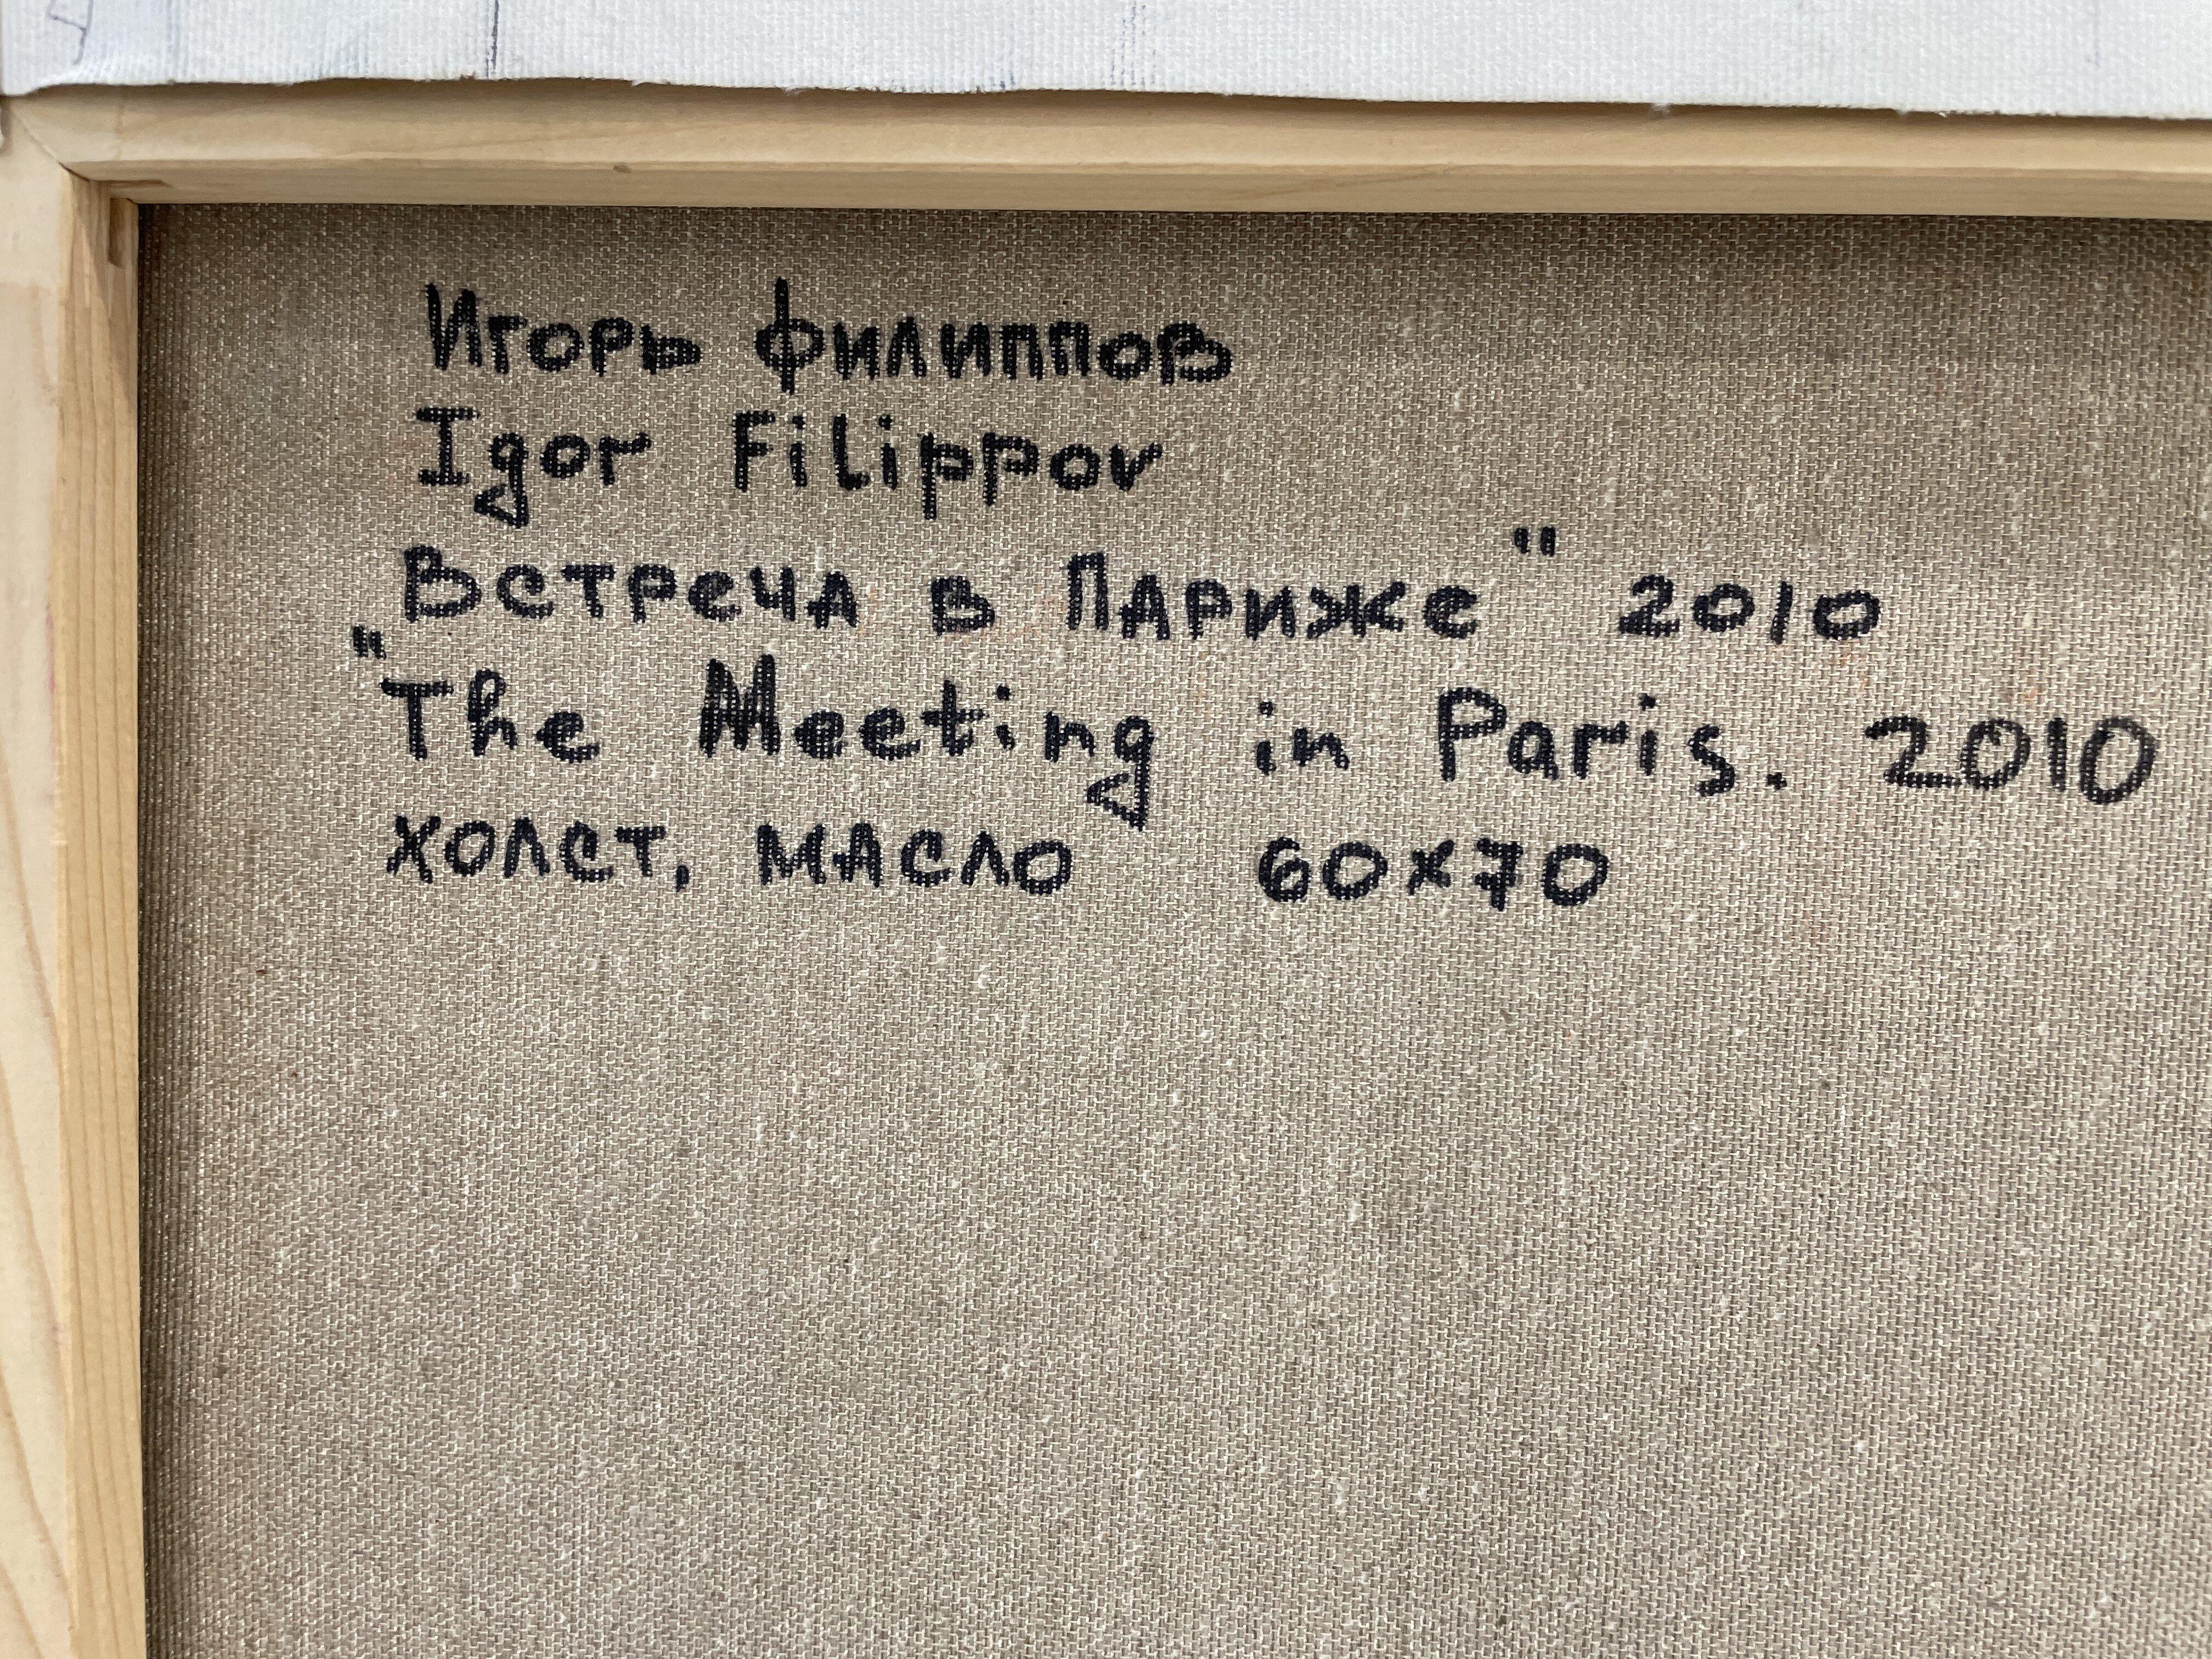 Игорь Филиппов
Igor Filippov
Встреча в Париже" 2010
"The Meeting in Paris. 2010
холст, масло 60x70